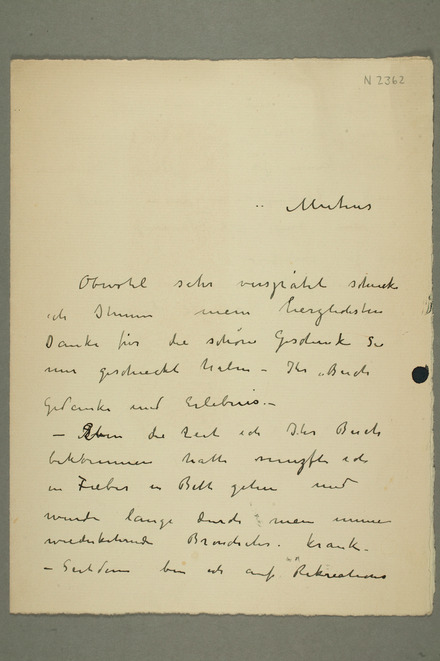 N 2362
Obwohl sehr verspätet schicke
ich Ihnen mein herzlichsten
Danke für die schöne Geschenk Sie
mir geschickt haben – Ihr Buch
Gedanke und Erlebnis. –
– die Zeit ich Ihr Buch
bekommen hatte musste ich
in Fieber in Bett gehen und
wurde lange durch mein immer
wiederkehrende Bronchitis. krank.
– Seitdem bin ich auf Rekreations